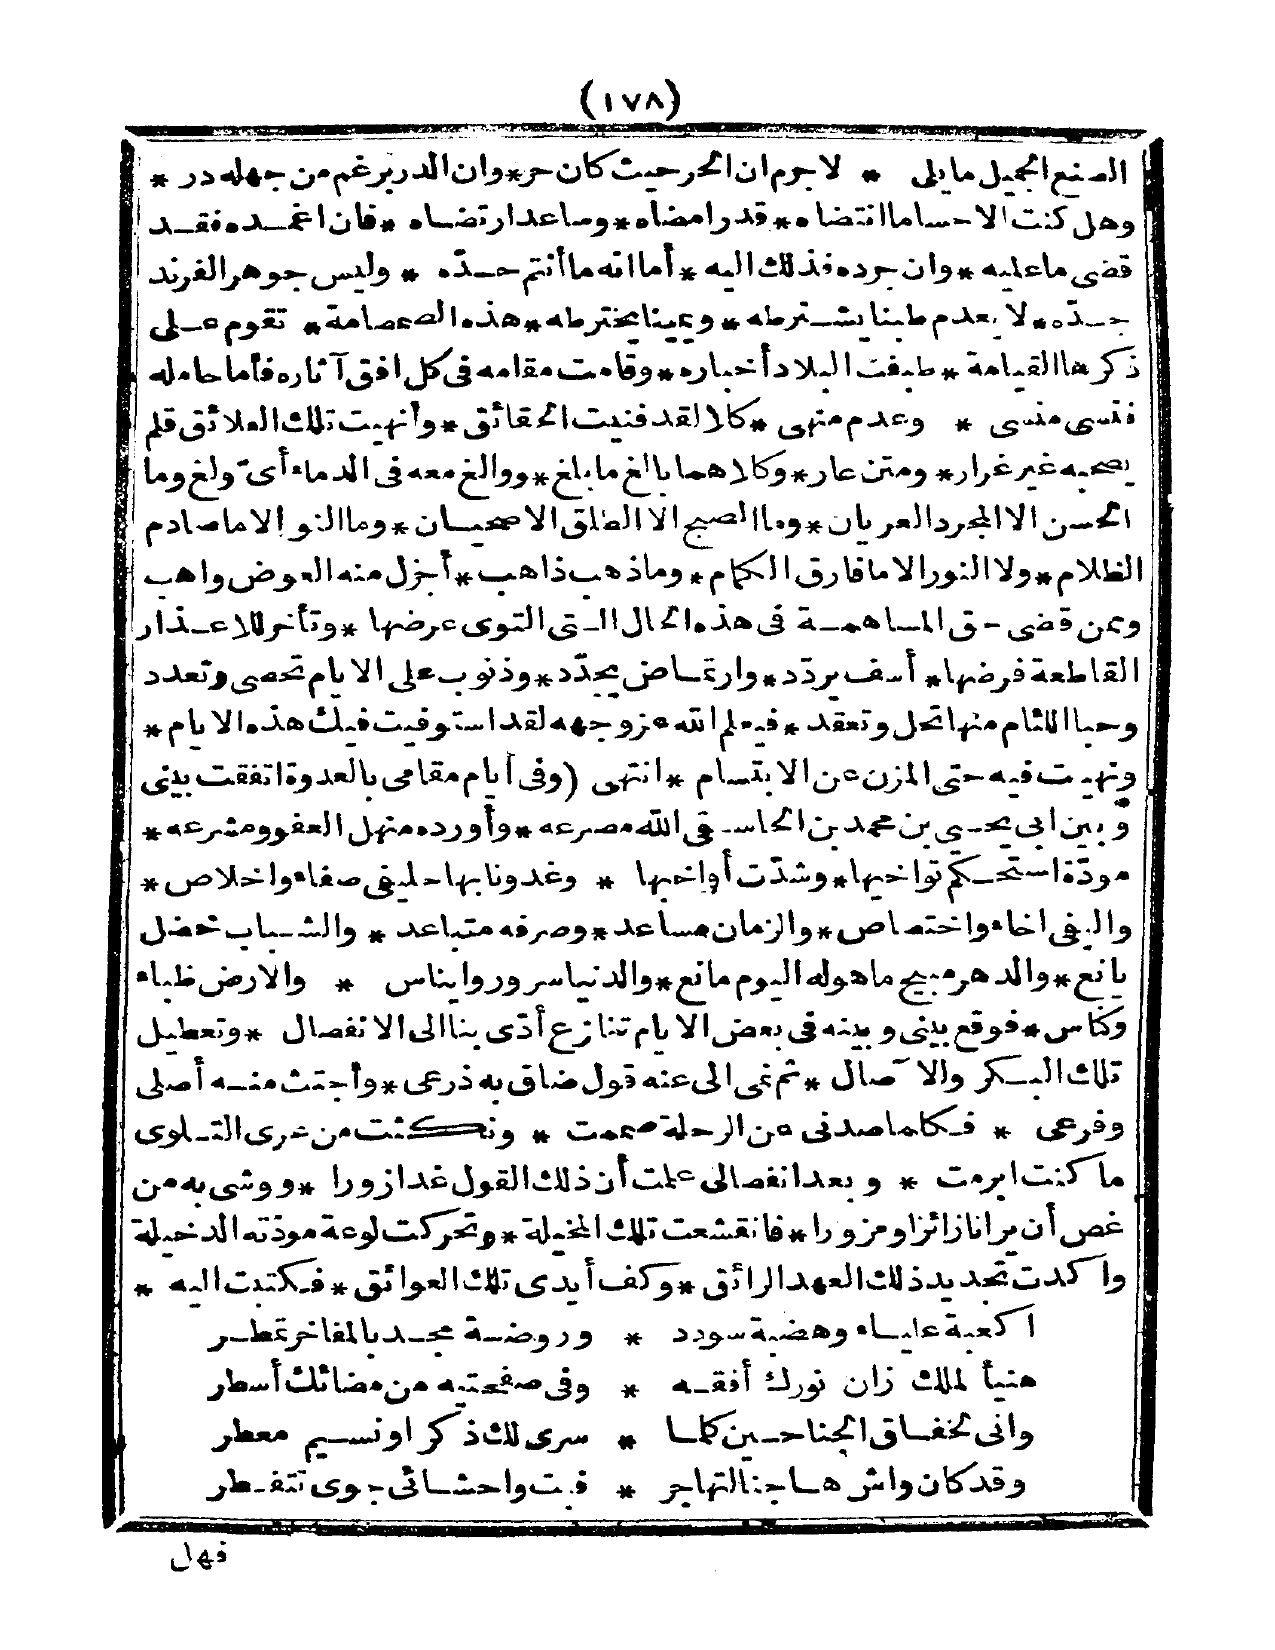 (١٧٨)
الصنع الجميل ما يلى * لا جرم ان الحر حيث كان حر * وان الدر برغم من جهله در *
وهل كنت الا حساما انتضاه * قدر امضاه * وساعد ارتضاه * فان اغمده فقد
قضى ما عليه * وان جرده فذلك اليه * أما انه ما أنثم حدّه * وليس جوهر الفرند
حدّه * لا يعدم طبنا يشترطه * ويمينا يخترطه * هذه الصمصامة * تقوم على
ذكرها القيامة * طبقت البلاد أخباره * وقامت مقامه فى كل افق آثاره فأما حامله
فنسى منسى * وعدم منهى * كلا لقد فنيت الحقائق * وأنهيت تلك العلائق فلم
يصحبه غير غرار * ومتن عار * وكلاهما بالغ ما بلغ * ووالغ معه فى الدماء أىّ ولغ وما
الحسن الا المجرد العريان * وما الصبح الا الطلق الاضحيان * وما النو الا ما صادم
الظلام * ولا النور الا ما فارق الكمام * وما ذهب ذاهب * أجزل منه العوض واهب
وعمن قضى حق المساهمة فى هذه الحال التى التوى عرضها * وتأخر للاعذار
القاطعة فرضها * أسف يردّد * وارتماض يجدّد * وذنوب على الايام تحصى وتعدد
وحبا اللثام منها تحل وتعقد * فيعلم الله عز وجهه لقد استوفيت فيك هذه الايام *
ونهيت فيه حتى المزن عن الابتسام * انتهى (وفى أيام مقامى بالعدوة اتفقت بينى
وبين ابى يحيى بن محمد بن الحاج سقى الله مصرعه * وأورده منهل العفو ومشرعه *
مودّة استحكم تواخيها * وشدّت أواخيها * وغدونا بها حليفى صفاء واخلاص *
واليفى اخاء واختصاص * والزمان مساعد * وصرفه متباعد * والشباب خضل
يانع * والدهر مبيح ما هو له اليوم مانع * والدنيا سرور وايناس * والارض ظباء
وكاس * فوقع بينى وبينه فى بعض الايام تنازع أدّى بنا الى الانفصال * وتعطيل
تلك البكر والآصال * ثم نمى الى عنه قول ضاق به ذرعى * واجتث منه أصلى
وفرعى * فكلما صدنى عن الرحلة صممت * ونكثت من عرى التلوى
ما كنت ابرمت * وبعد انفصالى علمت أن ذلك القول غدا زورا * ووشى به من
غص أن يرانا زائرا ومزورا * فانقشعت تلك المخيلة * وتحركت لوعة مودّته الدخيلة
واكدت تجديد ذلك العهد الرائق * وكف أيدى تلك العوائق * فكتبت اليه *
اكعبة علياء وهضبة سودد * وروضة مجد بالمفاخر تمطر
هنيأ لملك زان نورك أفقه * وفى صفحتيه من مضائك أسطر
وانى لخفاق الجناحين كلما * سرى لك ذكر او نسيم معطر
وقد كان واش هاجنا لتهاجر * فبت واحشائى جوى تتفطر
فهل